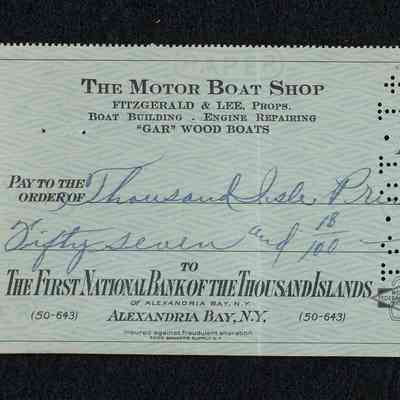 THE MOTOR BOAT SHOP
FITZGERALD & LEE, PROPS.
BOAT BUILDING - ENGINE REPAIRING
"GAR" WOOD BOATS
PAY TO THE
ORDER OF Thousand Isle Pri
Fifty seven and 18/100
TO
THE FIRST NATIONAL BANK OF THE THOUSAND ISLANDS
OF ALEXANDRIA BAY, N.Y.
(50-643) ALEXANDRIA BAY, N.Y. (50-643)
Insured against fraudulent alteration